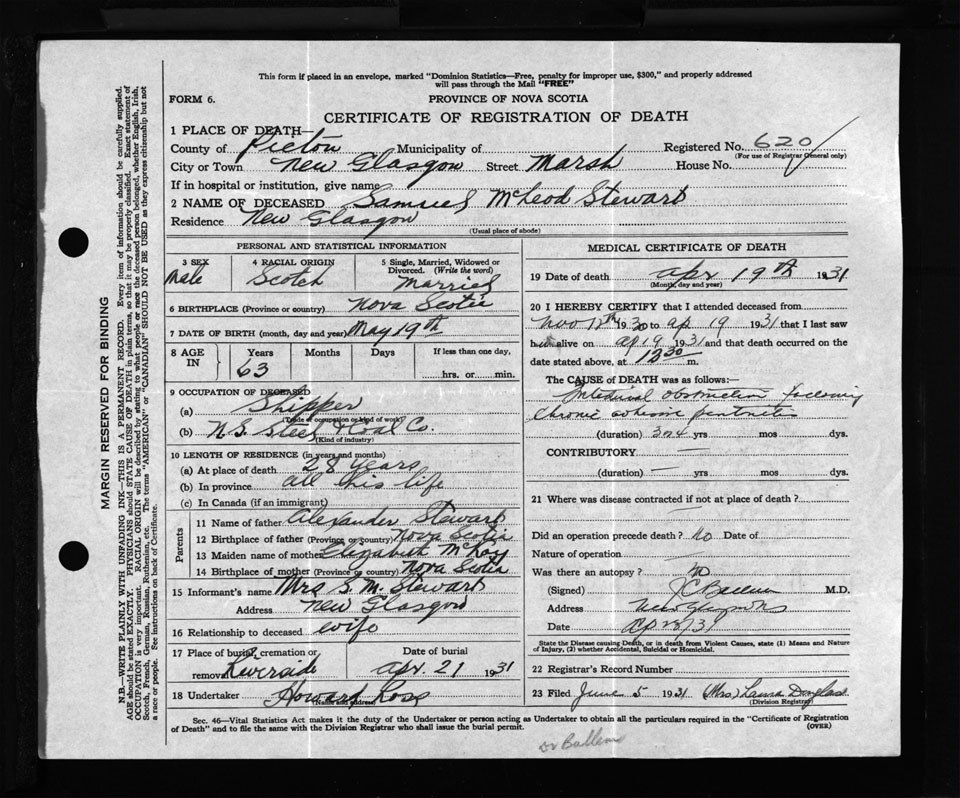 This form if placed in an envelope, marked "Dominion Statistics—Free, penalty for improper use, $300," and properly addressed
will pass through the Mail "FREE"
FORM 6.
PROVINCE OF NOVA SCOTIA
CERTIFICATE OF REGISTRATION OF DEATH
1 PLACE OF DEATH—
County of Pictou Municipality of Registered No. 620
(For use of Registrar General only)
City or Town New Glasgow Street Marsh House No.
If in hospital or institution, give name
2 NAME OF DECEASED Samuel McLeod Stewart
Residence New Glasgow
(Usual place of abode)
PERSONAL AND STATISTICAL INFORMATION
3 SEX 4 RACIAL ORIGIN 5 Single, Married, Widowed or
Divorced. (Write the word)
Male Scotch Married
6 BIRTHPLACE (Province or country) Nova Scotia
7 DATE OF BIRTH (month, day and year) May 19th
8 AGE IN Years Months Days If less than one day,
63 hrs. or min.
9 OCCUPATION OF DECEASED
(a) Shipper
(Trade or occupation or kind of work)
(b) N.S. Steel & Coal Co.
(Kind of industry)
10 LENGTH OF RESIDENCE (in years and months)
(a) At place of death 28 years
(b) In province all his life
(c) In Canada (if an immigrant)
Parents
11 Name of father Alexander Stewart
12 Birthplace of father (Province or country) Nova Scotia
13 Maiden name of mother Elizabeth
14 Birthplace of mother (Province or country) Nova Scotia
15 Informant's name Mrs S. M. Stewart
Address New Glasgow
16 Relationship to deceased wife
17 Place of burial, cremation or
removal Riverside
Date of burial
Apr. 21 1931
18 Undertaker Howard Ross
(Name and address)
MEDICAL CERTIFICATE OF DEATH
19 Date of death Apr 19th 1931
(Month, day and year)
20 I HEREBY CERTIFY that I attended deceased from
1930 to Ap 19 1931 that I last saw
h alive on Ap 19 1931 and that death occurred on the
date stated above, at 12 30 m.
The CAUSE of DEATH was as follows:—
Intestinal obstruction following
chronic adhesive peritonitis
(duration) 3 or 4 yrs mos dys.
CONTRIBUTORY —
(duration) — yrs mos dys.
21 Where was disease contracted if not at place of death?
—
Did an operation precede death? No Date of
Nature of operation —
Was there an autopsy? no
(Signed) M.D.
Address New Glasgow NS
Date
State the Disease causing Death, or in death from Violent Causes, state (1) Means and Nature
of Injury, (2) whether Accidental, Suicidal or Homicidal.
22 Registrar's Record Number
23 Filed June 5 1931 (Mrs) Laura Douglas
(Division Registrar)
Sec. 46—Vital Statistics Act makes it the duty of the Undertaker or person acting as Undertaker to obtain all the particulars required in the "Certificate of Registration
of Death" and to file the same with the Division Registrar who shall issue the burial permit. (OVER)
Dr Ballem
MARGIN RESERVED FOR BINDING
N.B.—WRITE PLAINLY WITH UNFADING INK—THIS IS A PERMANENT RECORD. Every item of information should be carefully supplied.
AGE should be stated EXACTLY. PHYSICIANS should STATE CAUSE OF DEATH in plain terms, so that it may be properly classified. Exact statement of
OCCUPATION is very important. RACIAL ORIGIN will be described by stating to what people or race the deceased person belonged, whether English, Irish,
Scotch, French, German, Russian, Ruthenian, etc. The terms "AMERICAN" or "CANADIAN" SHOULD NOT BE USED as they express citizenship but not
a race or people. See instructions on back of Certificate.